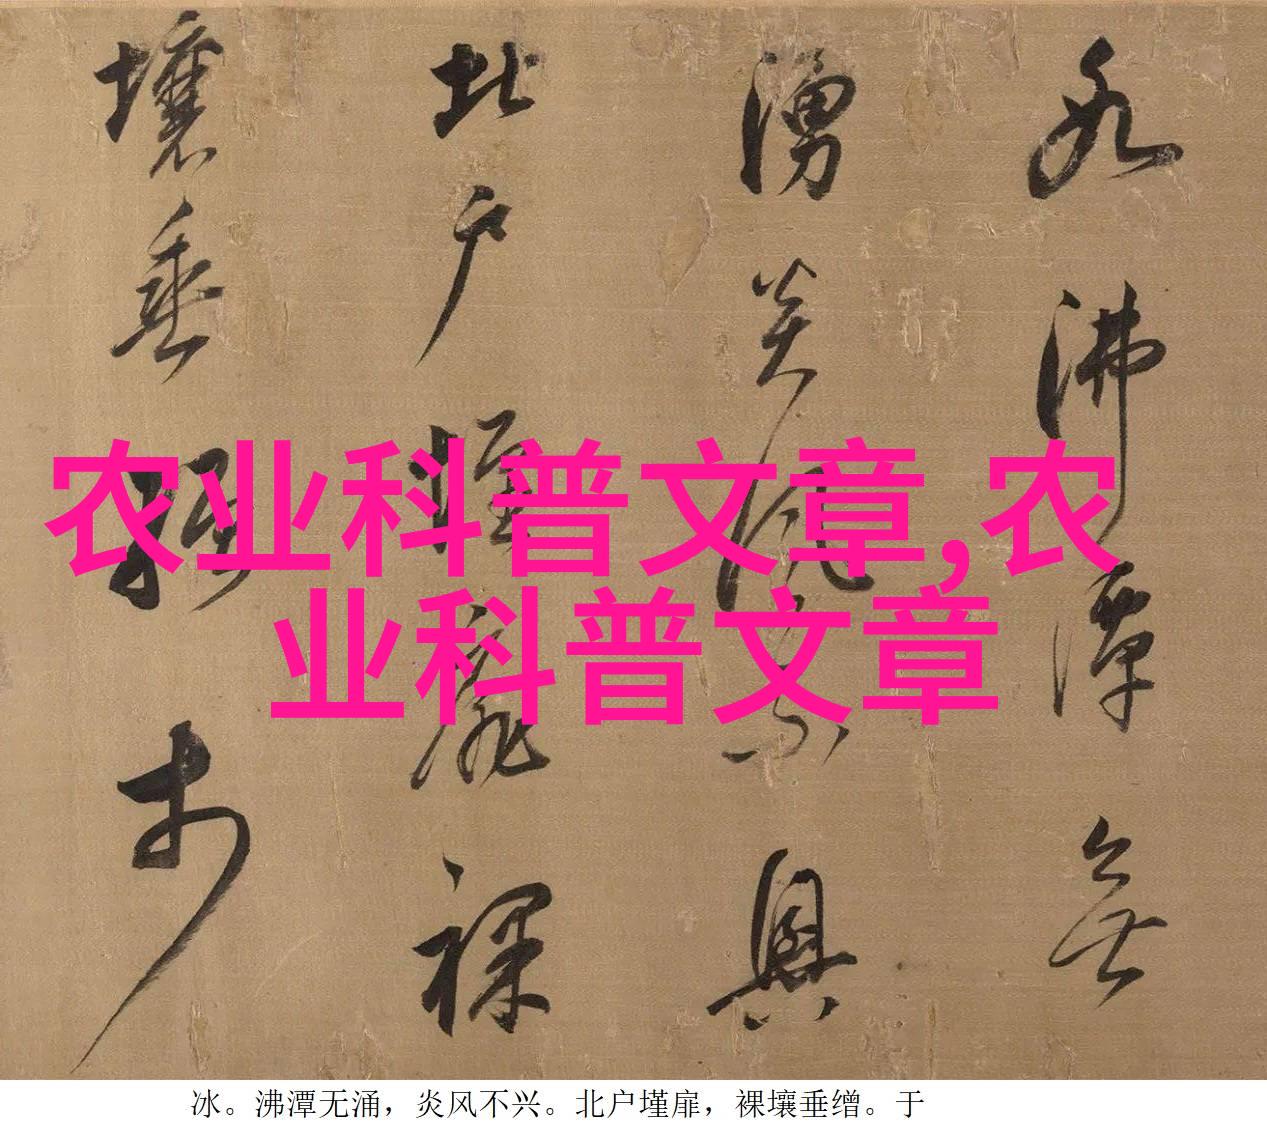 冰沸潭無
湧炎風不興
北戶墐扉裸
壤垂繒於
农业科普文章,农
业科普文章
冰。沸潭无涌，炎风不兴。北户墐扉，裸壤垂缯。于